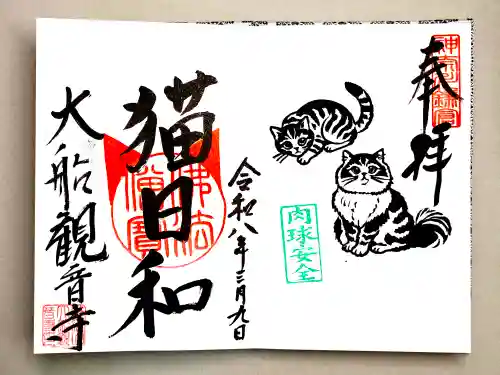 奉拝
肉球安全
令和八年三月九日
猫日和
佛法僧寳
大船観音寺